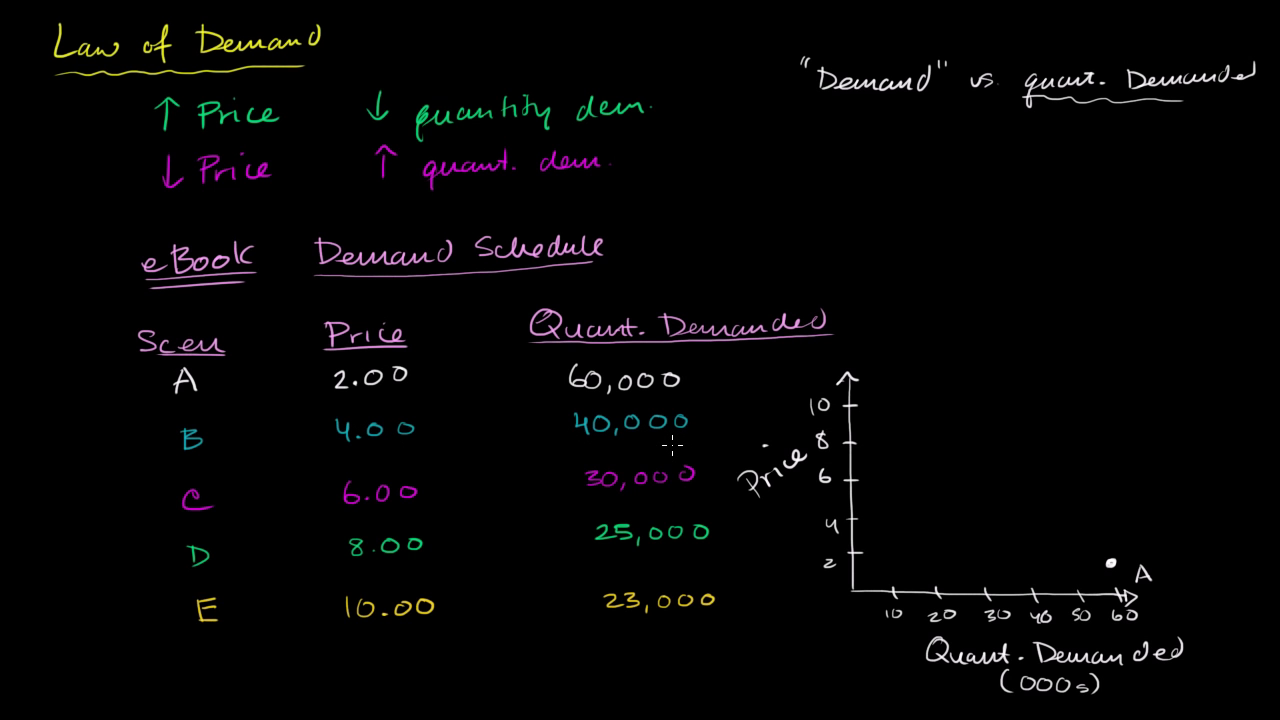 Law of Demand
"Demand" vs. quant. Demanded
↑ Price ↓ quantity dem.
↓ Price ↑ quant. dem.
eBook Demand Schedule
Scen Price Quant. Demanded
A 2.00 60,000
B 4.00 40,000
C 6.00 30,000
D 8.00 25,000
E 10.00 23,000
Price
10
8
6
4
2
A
10 20 30 40 50 60
Quant. Demanded
(000s)